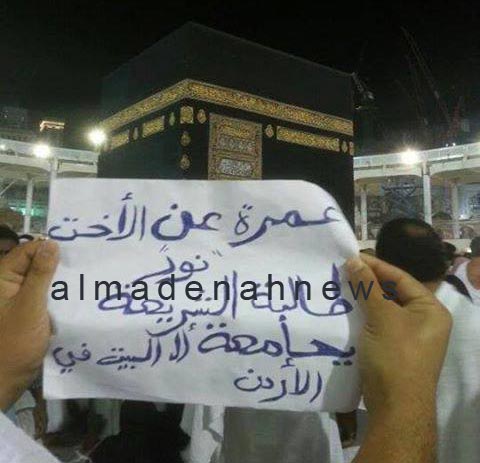 عمرة عن الأخت
"نور"
almadenahnews
طالبة الشريعة
بجامعة آل البيت في
الأردن